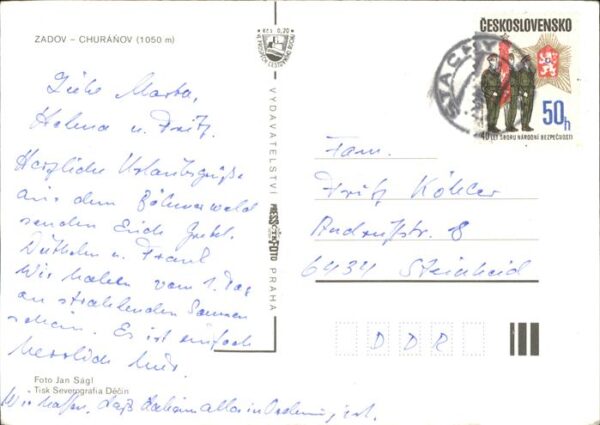 ZADOV – CHURÁŇOV (1050 m)
Kčs 0,20
Liebe Marta,
Helma u. Fritz.
Herzliche Urlaubsgrüße
aus dem Böhmerwald
senden Euch
u. Frank
Wir haben vom 1. Tag
an strahlenden Sonnen
schein. Es ist einfach
herrlich hier.
Foto Jan Ságl
Tisk Severografia Děčín
Wir hoffen, daß daheim alles in Ordnung ist.
VYDAVATELSTVÍ PRESSFOTO PRAHA
ČESKOSLOVENSKO
50h
40 LET SBORU NÁRODNÍ BEZPEČNOSTI
STACHY
Fam.
Fritz Köhler
8
6434 Steinheid
DDR